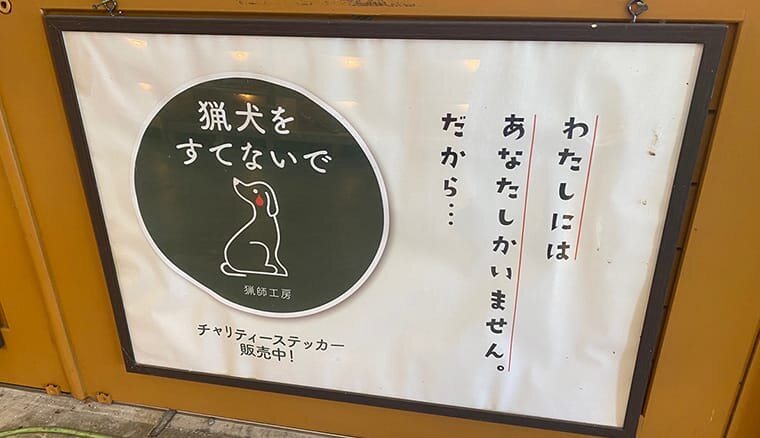 わたしには
あなたしかいません。
だから…
猟犬を
すてないで
猟師工房
チャリティーステッカー
販売中!